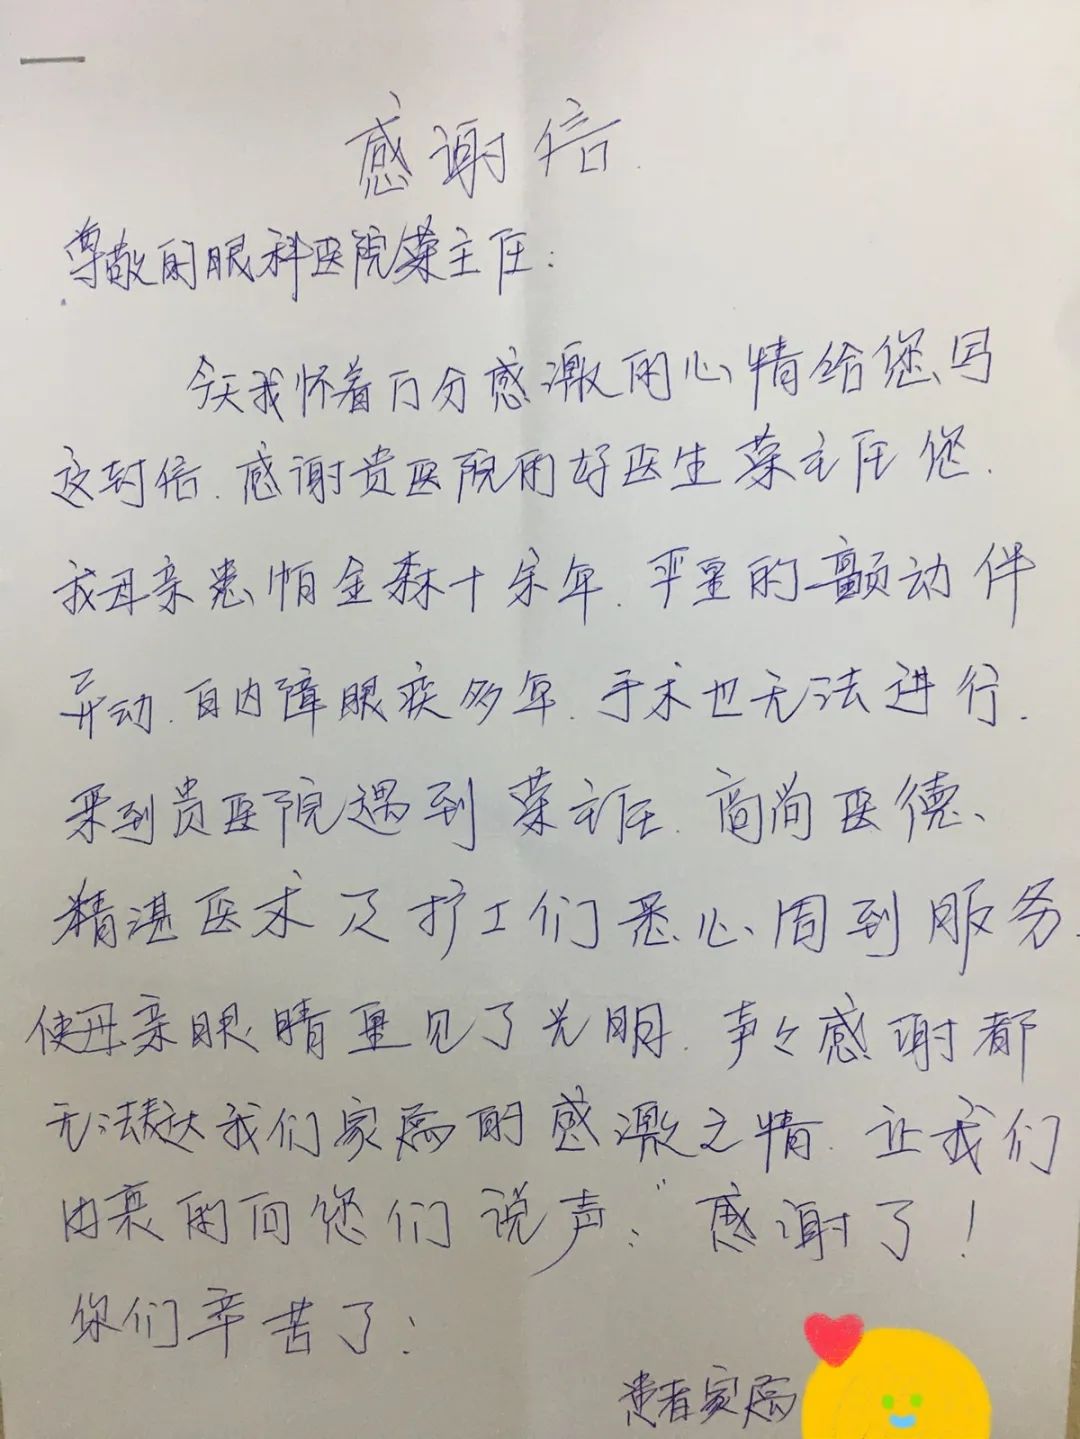 感谢信.
尊敬的眼科医院荣主任:
今天我怀着万分感激的心情给您写
这封信.感谢贵医院的好医生荣主任您.
我母亲患帕金森十余年.严重的颤动伴
异动.白内障眼疾多年.手术也无法进行.
来到贵医院遇到荣主任.高尚医德、
精湛医术及护士们悉心周到服务.
使母亲眼睛重见了光明.声々感谢都
无法表达我们家属的感激之情.让我们
由衷的向您们说声:“感谢了!
你们辛苦了!
患者家属